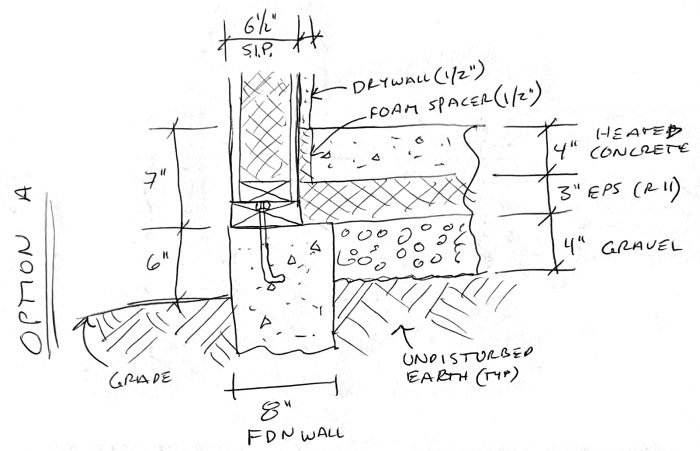 6½"
S.I.P.
DRYWALL (1/2")
FOAM SPACER (1/2")
4" HEATED
CONCRETE
7"
3" EPS (R11)
6"
4" GRAVEL
OPTION A
GRADE
UNDISTURBED
EARTH (TYP)
8"
FDN WALL